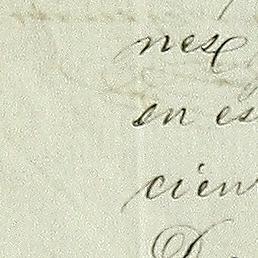 nes
en es
cien
D